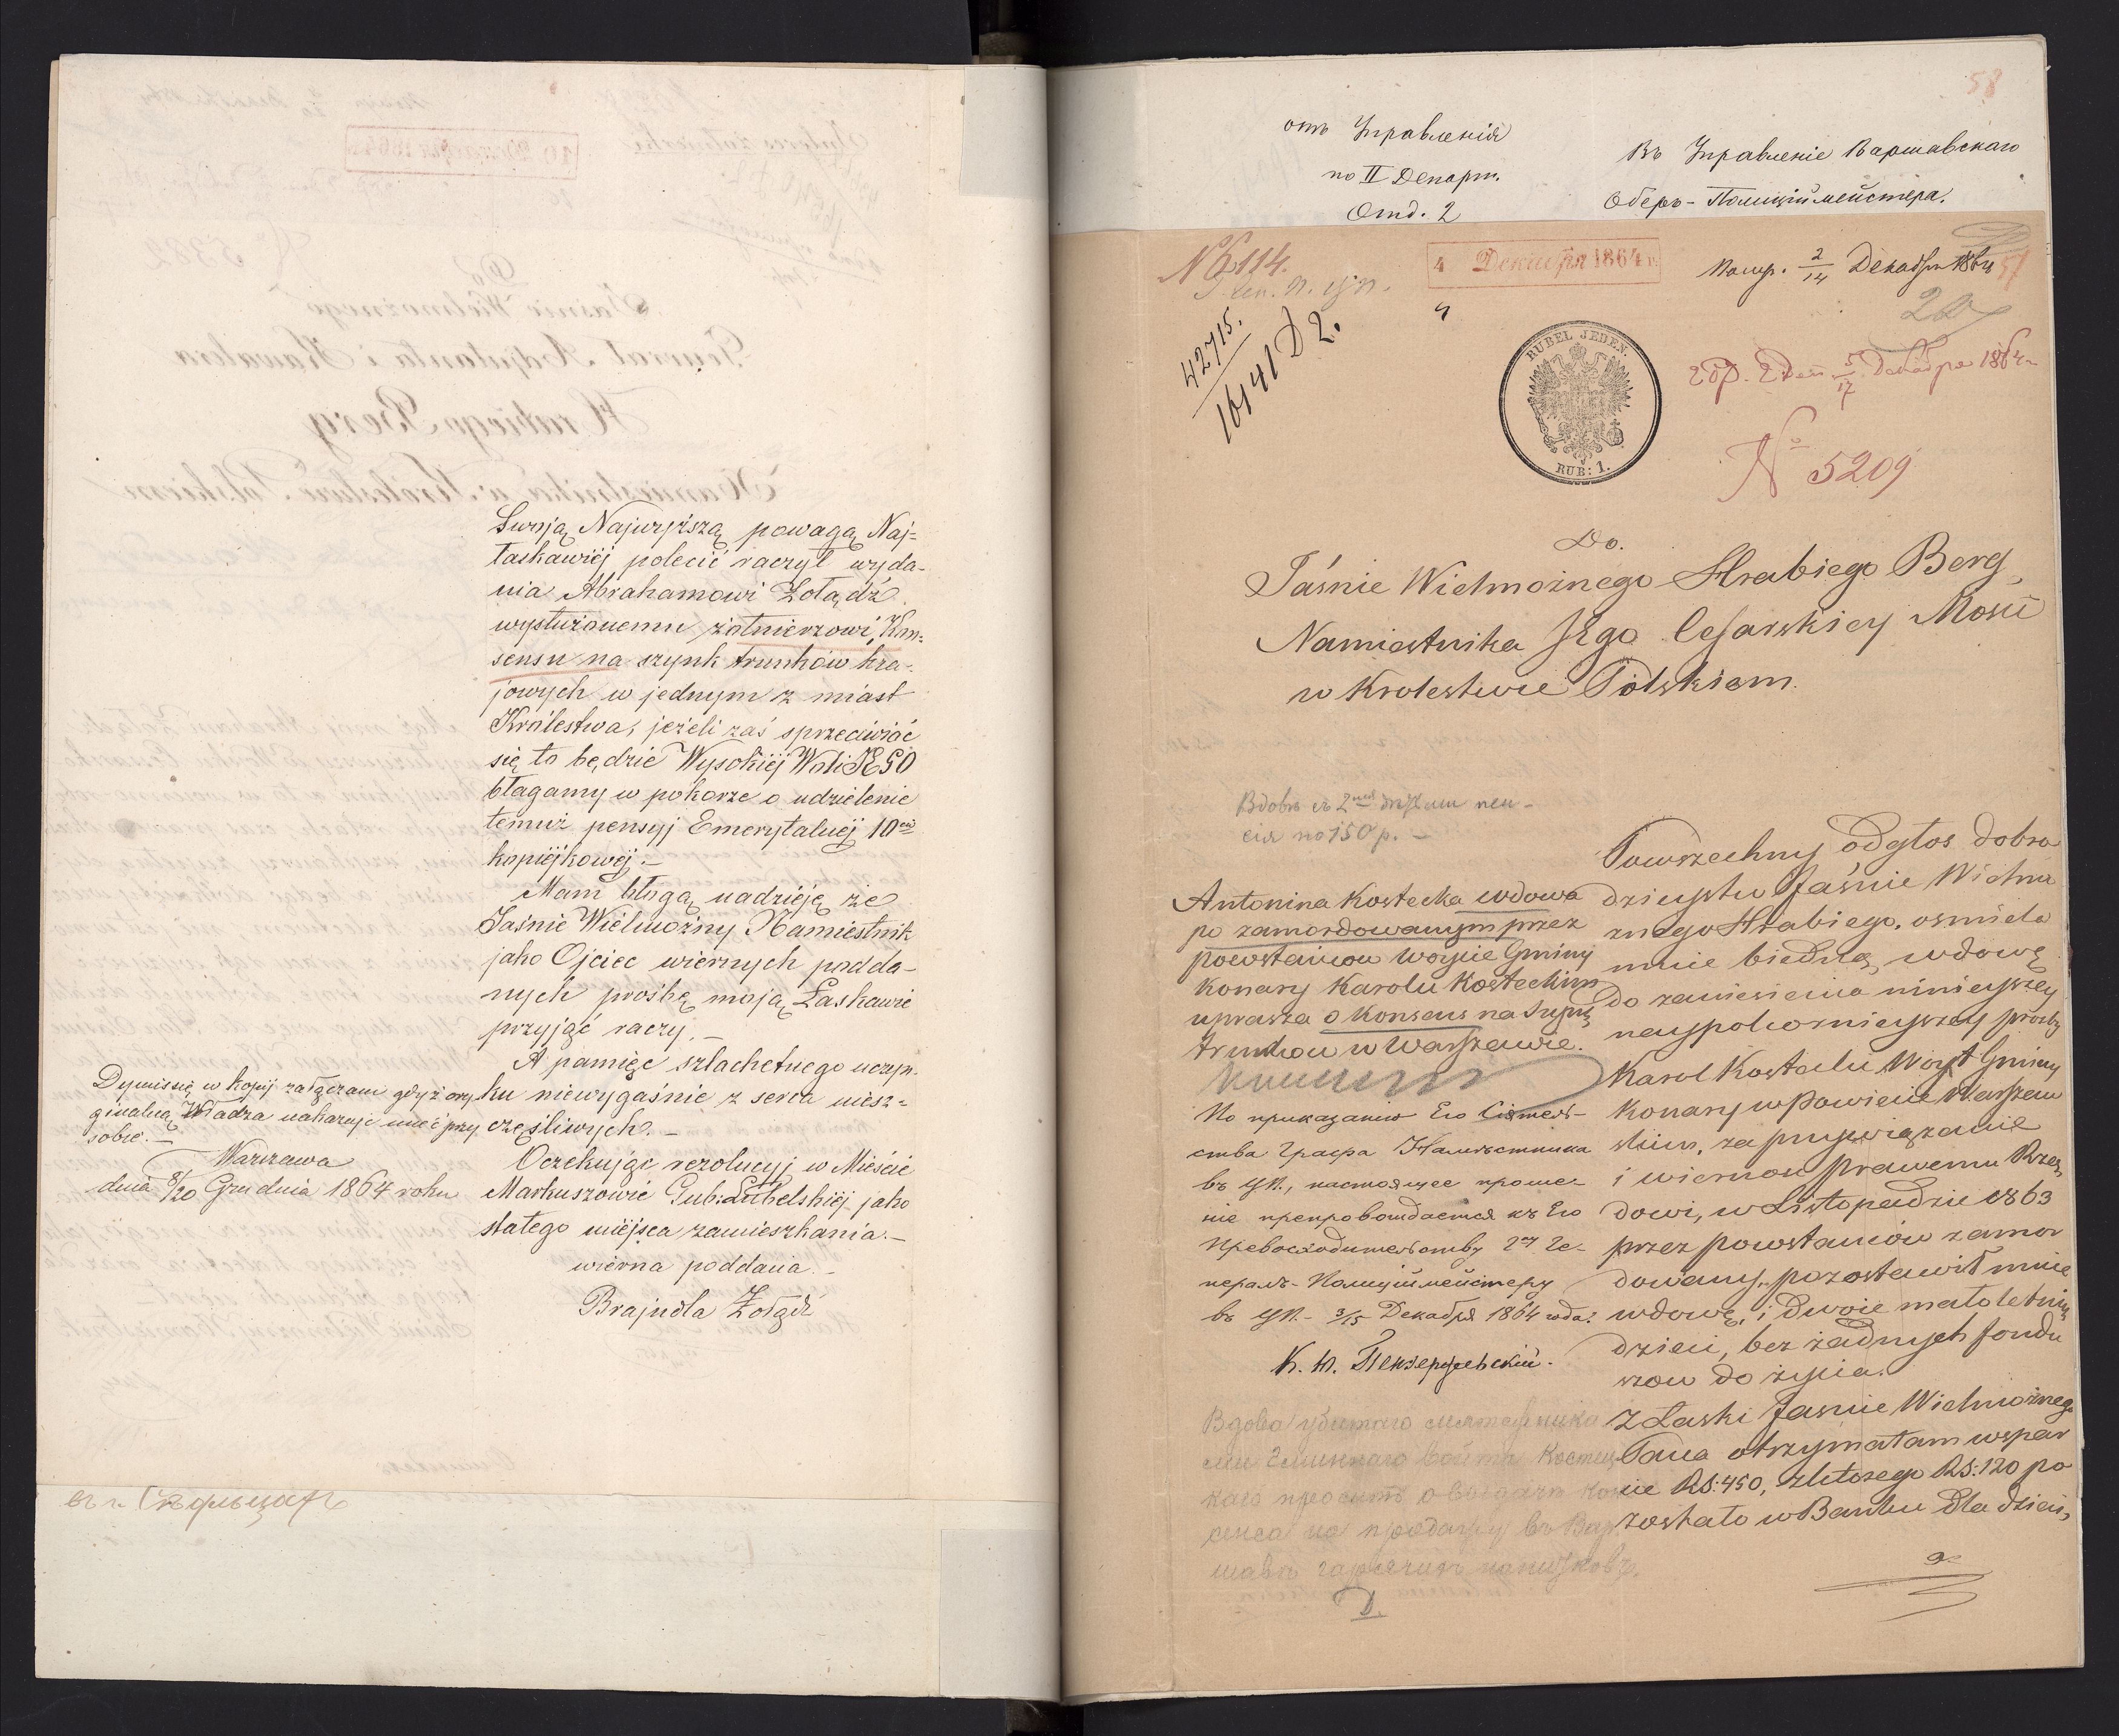 Swoją Najwyższą powagą Naj=
łaskawiéj polecić raczył wyda-
nia Abrahamowi Żołądź
wysłużonemu żołnierzowi, Kon=
sensu na szynk trunków kra-
jowych w jednym z miast
Królestwa, jeżeli zaś sprzeciwiać
się to będzie Wysokiéj Woli JEGO
błagamy w pokorze o udzielenie
temuż pensyj Emerytalnéj 10cio
kopiéjkowéj.-
Mam błogą nadzieję że
Jaśnie Wielmożny Namiestnik
jako Ojciec wiernych podda-
nych prośbę moją Łaskawie
przyjąć raczy. -
A pamięć szlachetnego uczyn-
ku niewygaśnie z serca niesz=
częśliwych. -
Oczekując rezolucyj w Mieście
Markuszowie Gub: Lubelskiéj jako
stałego miéjsca zamieszkania.-
wierna poddana. -
Brajndla Żołądź
Dymissię w kopij załączam gdyż ory-
ginalną Władza nakazuje mieć przy
sobie. -
Warszawa
dnia 8/20 Grudnia 1864 roku
58
отъ Управленія
по II Департ.
Отд. 2
Въ Управленіе Варшавскаго
Оберъ-Полиціймейстера.
N 6114.
4 Декабря 1864 г.
Получ. 2/14 Декабря 1864
42715.
16141 D 2.
RUBEL JEDEN.
RUB: 1.
5/17 Декабря 1864
No 5209
Do.
Jaśnie Wielmożnego Hrabiego Berg,
Namiestnika Jego Cesarskiey Mości
w Krolestwie Polskiem.
Вдова съ 2мя дѣтьми пен-
сія по 150 р. -
Antonina Kostecka wdowa
po zamordowanym przez
powstańcow woycie Gminy
Konary Karolu Kosteckim
uprasza o Konsens na Szynk
trunkow w Warszawie.
По приказанію Его Сіятель-
ства Графа Намѣстника
въ ЦП., настоящее проше-
ніе препровождается къ Его
Превосходительству Гну Ге-
нералъ-Полиціймейстеру
въ ЦП. - 3/15 Декабря 1864 года.
Вдова убитаго мятежника
ми Гминнаго Войта Костец
каго проситъ о выдачѣ кон
сенса на продажу въ Вар
шавѣ горячихъ напитковъ.
Powszechny odgłos dobro
dzieystw Jaśnie Wielmo
żnego Hrabiego, ośmiela
mnie biedną wdowę
do zaniesienia ninieyszey
naypokornieyszey prośby
Karol Kostecki Woyt Gminy
Konary w Powiecie Warszaw
skim, za przywiązanie
i wiernosc prawemu Rzą
dowi, w Listopadzie 1863
przez powstańców zamor
dowany, pozostawił mnie
wdowę, i dwoie małoletnich
dzieci, bez żadnych fondu
szow do życia.
Z Łaski Jaśnie Wielmożnego
Pana otrzymałam wspar
cie RS: 450, z ktorego RS: 120 po
zostało w Banku dla dzieci,